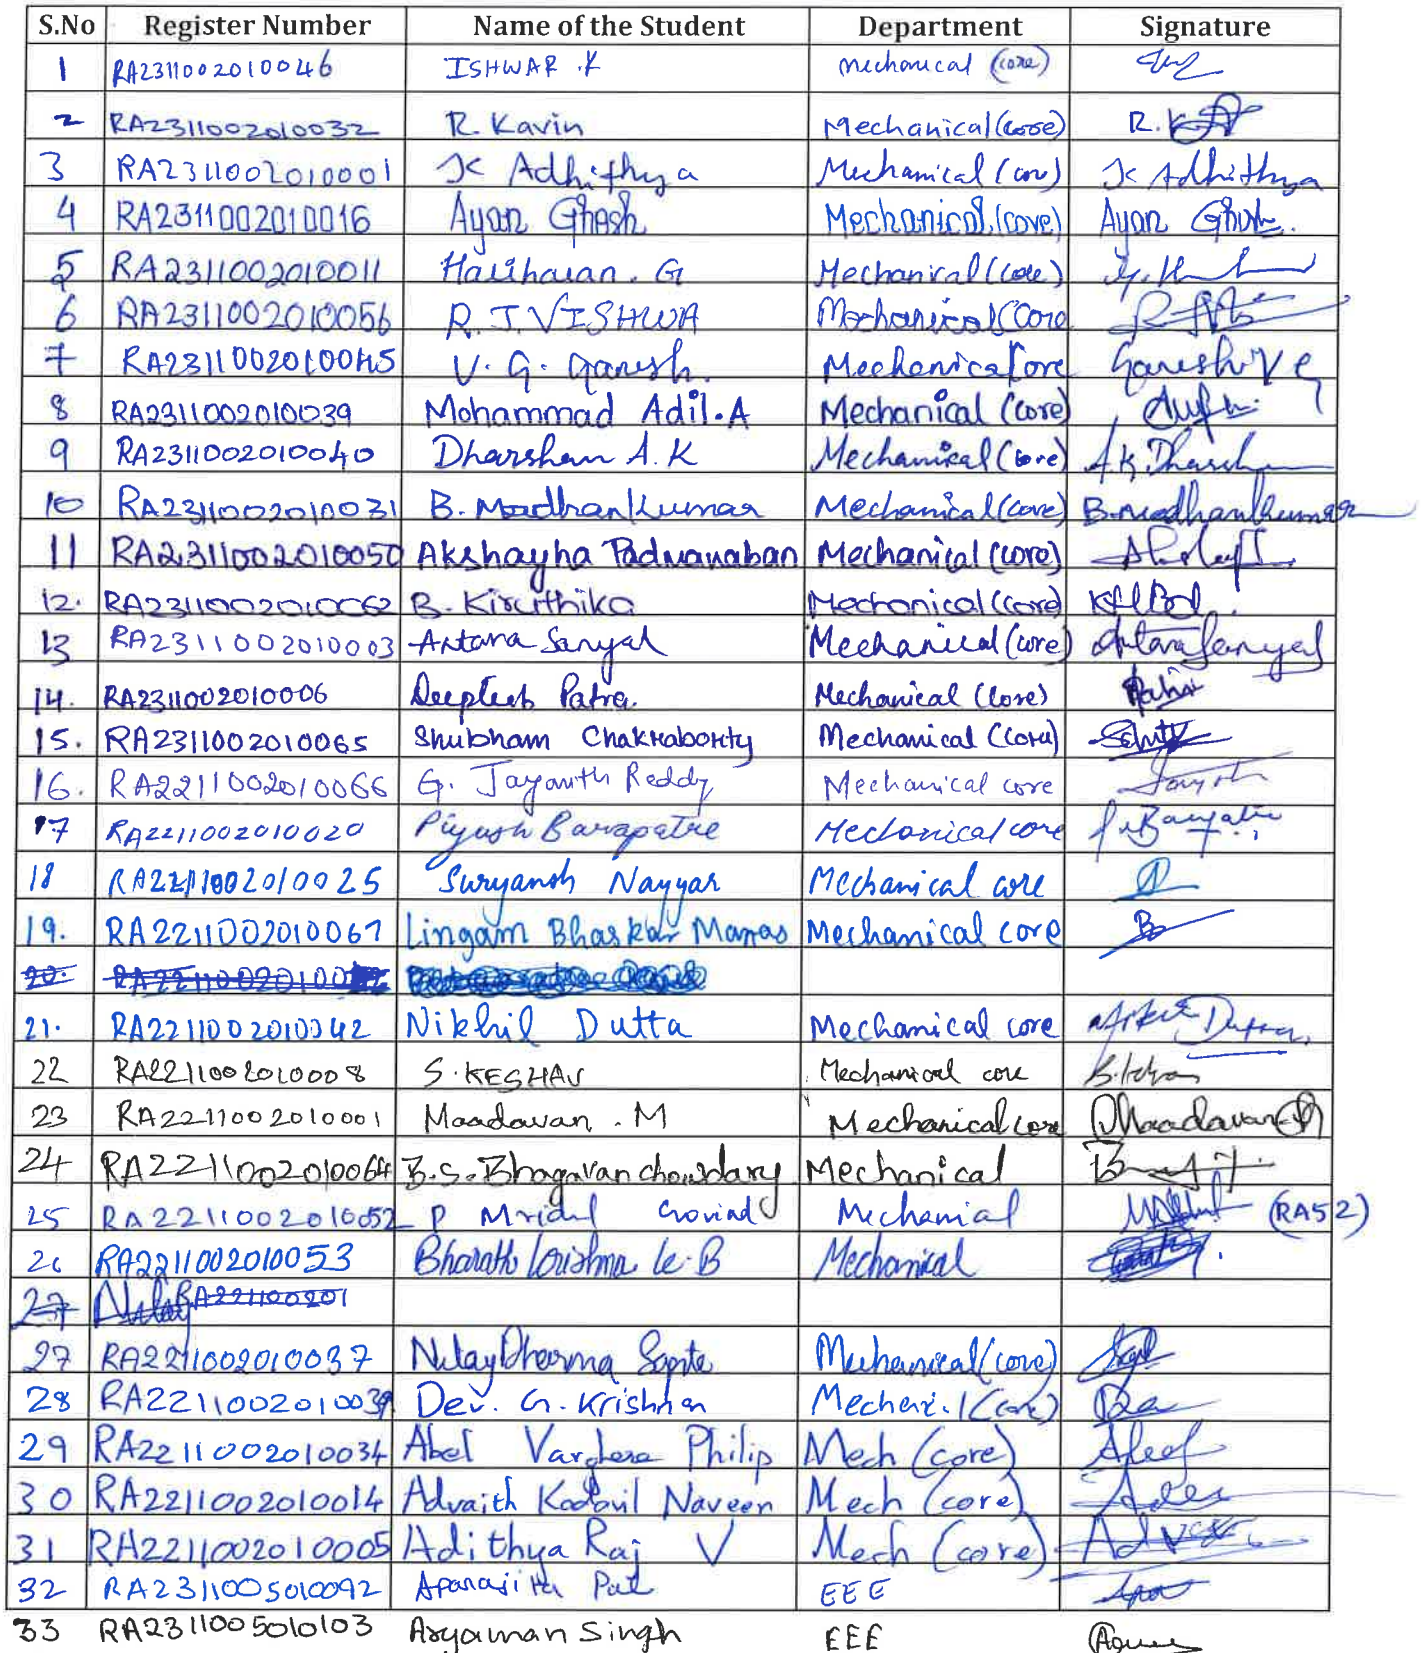 S.No Register Number Name of the Student Department Signature
1 RA2311002010046 ISHWAR .K Mechanical (core)
2 RA2311002010032 R. Kavin Mechanical (core) R.
3 RA2311002010001 K Adhithya Mechanical (core) K Adhithya
4 RA2311002010016 Ayan Ghosh Mechanical (core) Ayan Ghosh.
5 RA2311002010011 Hariharan. G Mechanical (core)
6 RA2311002010056 R. J. VISHWA Mechanical (Core
7 RA2311002010045 V. G. Ganesh. Mechanical Core Ganesh V G
8 RA2311002010039 Mohammad Adil.A Mechanical (core)
9 RA2311002010040 Dharshan A.K Mechanical (core) A.K. Dharshan
10 RA2311002010031 B. Madhankumar Mechanical (core) B.madhankumar
11 RA2311002010050 Akshayha Padmanaban Mechanical (core)
12. RA2311002010062 B. Kiruthika Mechanical (core)
13 RA2311002010003 Antara Sanyal Mechanical (core) Antara Sanyal
14. RA2311002010006 Deepteb Patra. Mechanical (core)
15. RA2311002010065 Shubham Chakraborty Mechanical (Core)
16. RA2211002010066 G. Jayanth Reddy Mechanical core
17 RA2211002010020 Piyush Barapatre Mechanical core
18 RA2211002010025 Suryansh Nayyar Mechanical core
19. RA2211002010067 Lingam Bhaskar Manas Mechanical core
20.
21. RA2211002010042 Nikhil Dutta Mechanical core Dutta
22 RA2211002010008 S. KESHAV Mechanical core
23 RA2211002010001 Maadavan . M Mechanical core Maadavan M
24 RA2211002010064 B.S. Bhagavan chowdary Mechanical
25 RA2211002010052 P Mridul Govind Mechanical (RA52)
26 RA2211002010053 Bharath Krishna K.B Mechanical
27 Nilay RA221100201
27 RA2211002010037 Nilay Dharma Sapte Mechanical (core)
28 RA2211002010039 Dev. G. Krishna Mechanical (Core)
29 RA2211002010034 Abel Varghese Philip Mech (core)
30 RA2211002010014 Advaith Kodavil Naveen Mech (core)
31 RA2211002010005 Adithya Raj V Mech (core)
32 RA2311005010092 Aparajita Pal EEE
33 RA2311005010103 Aryaman Singh EEE